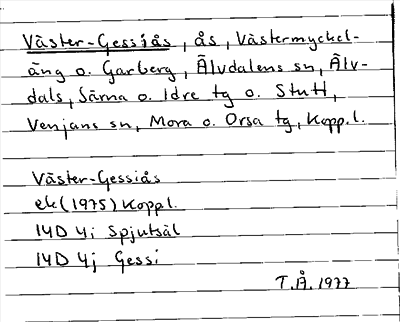 Väster-Gessiås, ås, Västermyckel-
äng o. Garberg, Älvdalens sn, Älv-
dals, Särna o. Idre tg o. Stutt,
Venjans sn, Mora o. Orsa tg, Kopp.l.
Väster-Gessiås
ek (1975) Kopp l.
14D 4i Spjutsäl
14D 4j Gessi
T.Å. 1977